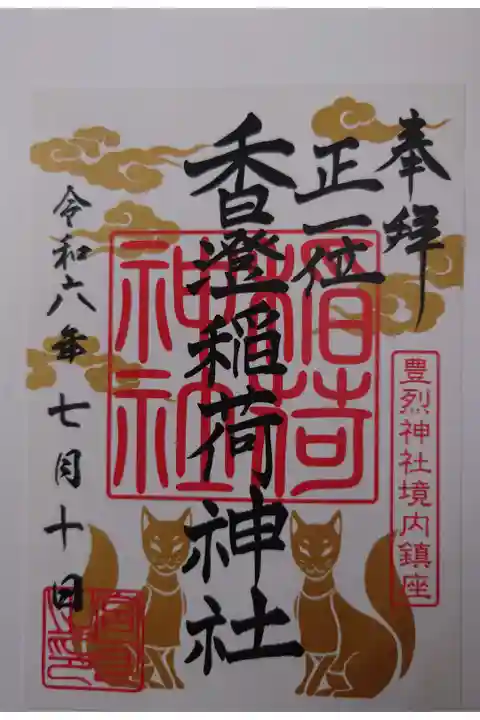 奉拝
正一位
香澄稲荷神社
令和六年七月十日
豊烈神社境内鎮座
稲荷
神社